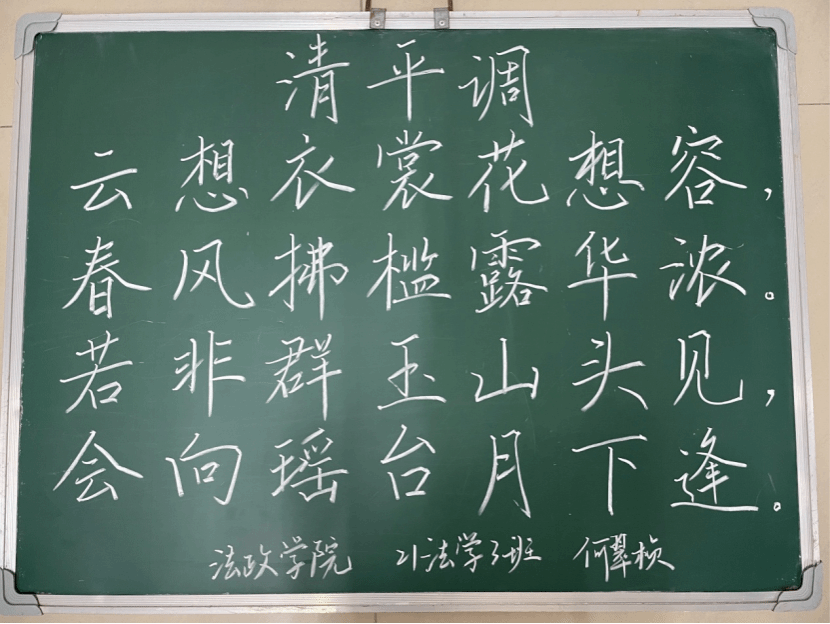 清平调
云想衣裳花想容,
春风拂槛露华浓。
若非群玉山头见,
会向瑶台月下逢。
法政学院 21法学3班 何翠桢